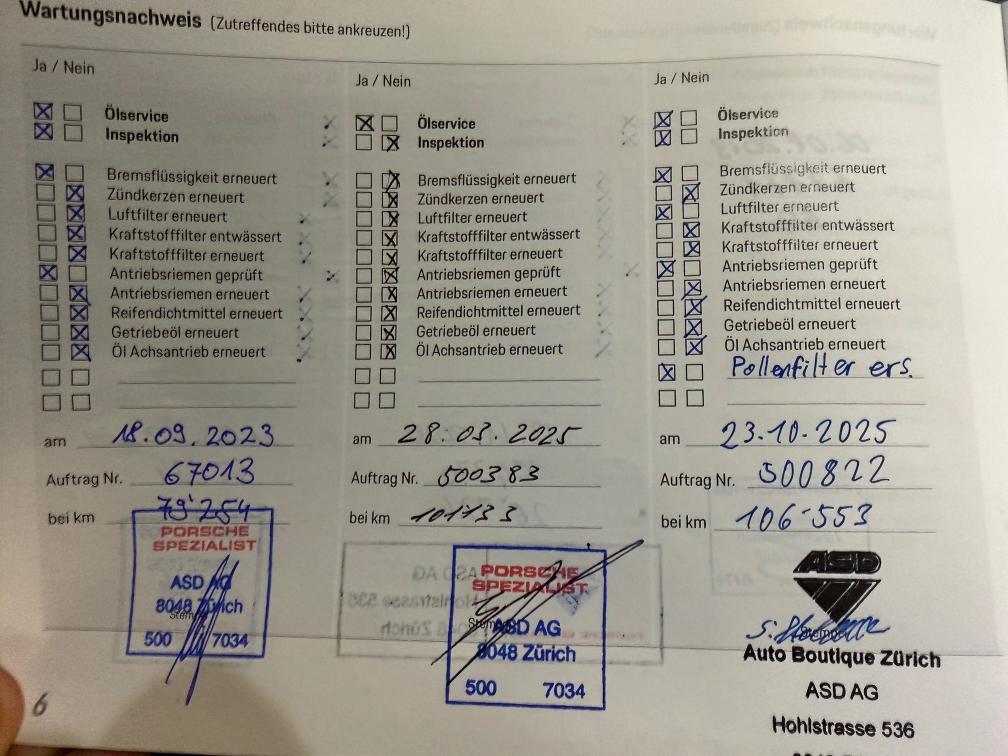 Wartungsnachweis (Zutreffendes bitte ankreuzen!)
Ja / Nein
Ölservice
Inspektion
Bremsflüssigkeit erneuert
Zündkerzen erneuert
Luftfilter erneuert
Kraftstofffilter entwässert
Kraftstofffilter erneuert
Antriebsriemen geprüft
Antriebsriemen erneuert
Reifendichtmittel erneuert
Getriebeöl erneuert
Öl Achsantrieb erneuert
am 18.09.2023
Auftrag Nr. 67013
bei km 79'254
PORSCHE
SPEZIALIST
ASD AG
8048 Zürich
500 7034
Ja / Nein
Ölservice
Inspektion
Bremsflüssigkeit erneuert
Zündkerzen erneuert
Luftfilter erneuert
Kraftstofffilter entwässert
Kraftstofffilter erneuert
Antriebsriemen geprüft
Antriebsriemen erneuert
Reifendichtmittel erneuert
Getriebeöl erneuert
Öl Achsantrieb erneuert
am 28.03.2025
Auftrag Nr. 500383
bei km 101733
PORSCHE
SPEZIALIST
ASD AG
8048 Zürich
500 7034
Ja / Nein
Ölservice
Inspektion
Bremsflüssigkeit erneuert
Zündkerzen erneuert
Luftfilter erneuert
Kraftstofffilter entwässert
Kraftstofffilter erneuert
Antriebsriemen geprüft
Antriebsriemen erneuert
Reifendichtmittel erneuert
Getriebeöl erneuert
Öl Achsantrieb erneuert
Pollenfilter ers.
am 23.10.2025
Auftrag Nr. 500822
bei km 106.553
ASD
Auto Boutique Zürich
ASD AG
Hohlstrasse 536
6